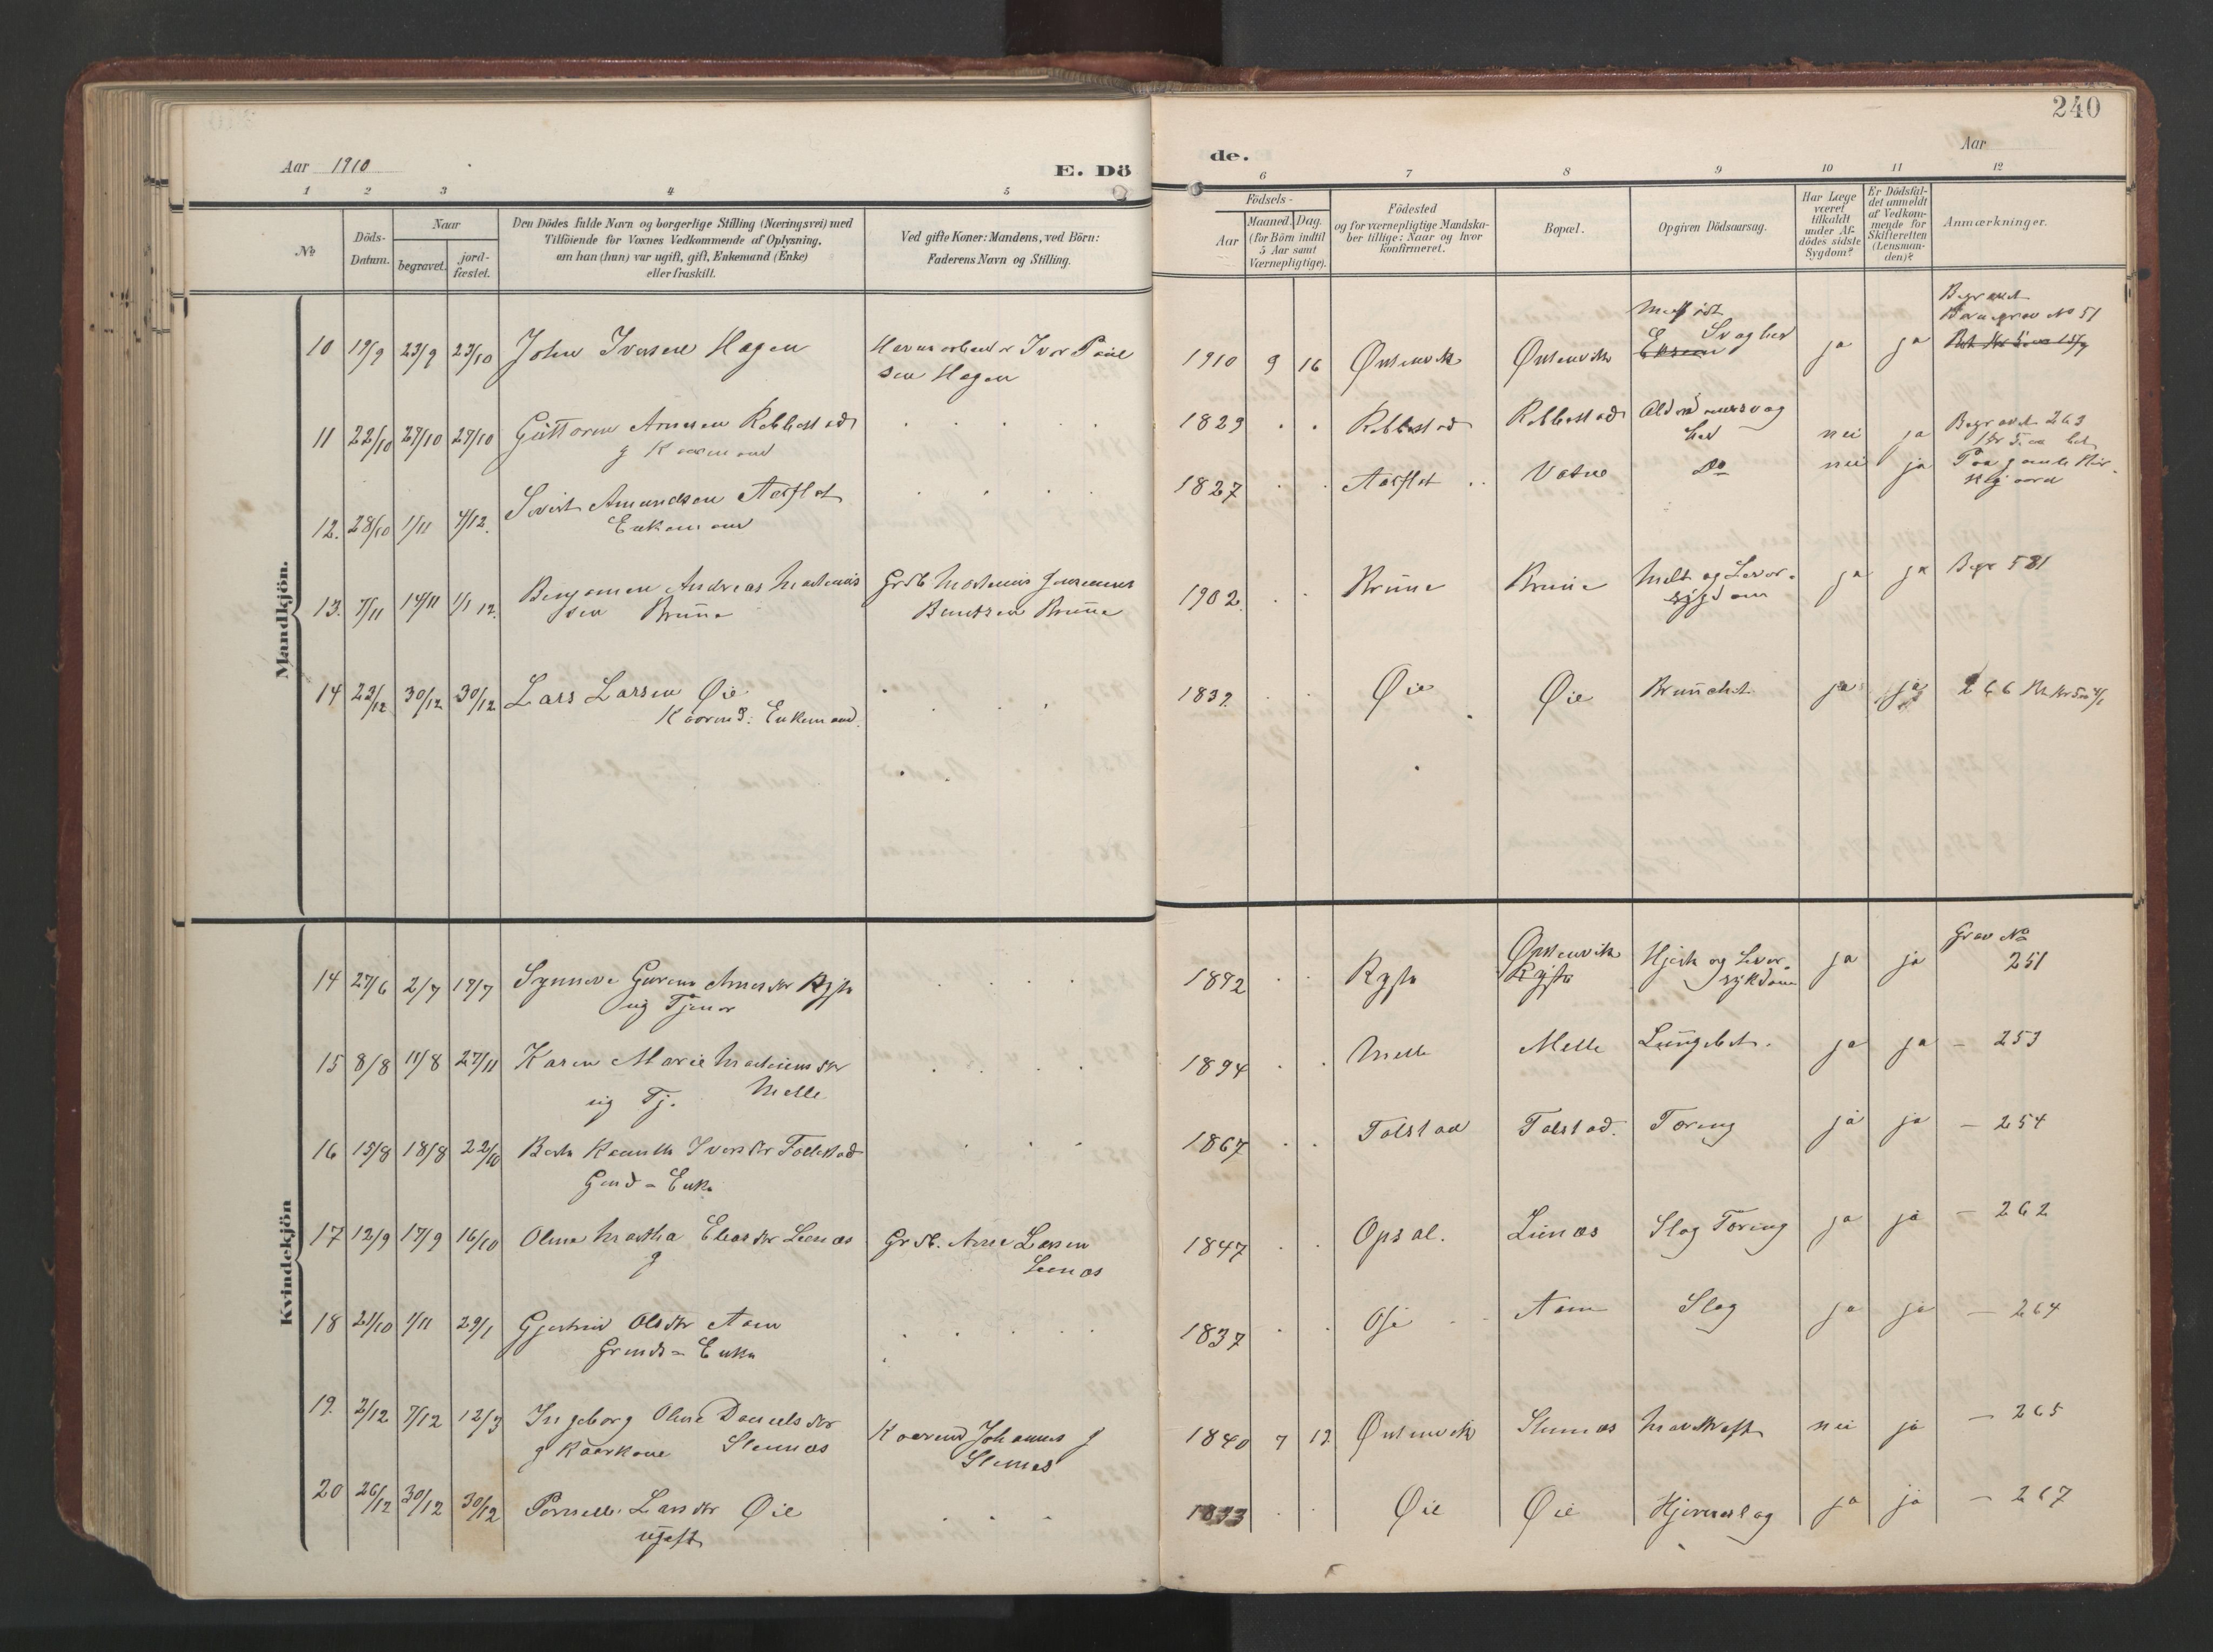 240
Aar 1910
E. Dö
de.
Aar
1 2 3 4 5
6 7 8 9 10 11 12
No
Döds-Datum.
Naar
begravet.
jord-fæstet.
Den Dödes fulde Navn og borgerlige Stilling (Næringsvei) med
Tilföiende for Voxnes Vedkommende af Oplysning,
om han (hun) var ugift, gift, Enkemand (Enke)
eller fraskilt.
Ved gifte Koner: Mandens, ved Börn:
Faderens Navn og Stilling.
Födsels-
Aar
Maaned. Dag.
(for Börn indtil
5 Aar samt
Værnepligtige).
Födested
og for værnepligtige Mandska-
ber tillige: Naar og hvor
konfirmeret.
Bopæl.
Opgiven Dödsaarsag.
Har Læge
været
tilkaldt
under Af-
dödes sidste
Sygdom?
Er Dödsfal-
det anmeldt
af Vedkom-
mende for
Skifteretten
(Lensman-
den)?
Anmærkninger.
Mandkjön.
10 19/9 23/9 23/10 John Iversen Hagen
sen Hagen
1910 9 16 Ørstenvik Ørstenvik Svaghed ja ja
Begravet
No 51
11 22/10 27/10 27/10 Guttorm Arnesen Robbestad
g Kaarmand
1829 Robbestad Robbestad Alderdomssvag
hed nei ja Begravet 263
12. 28/10 1/11 4/12. Sivert Amundsen Aarflot
Enkemand
1827 Aarflot Vatne Do nei ja Paa gamle Kir-
kegaard
13. 7/11 14/11 1/1 12. Benjamin Andreas Martinus
sen Brune
Grdb Martinus
Bentsen Brune
1902. Brune Brune Milt og Lever-
sygdom ja ja Begr 581
14 23/12 30/12 30/12 Lars Larsen Øie
Kaarmd. Enkemand.
1832 Øie Øie Brunchit ja ja 266
Kvindekjön
14 27/6 2/7 17/7 Synneve Gurine Arnesdtr Rysta
ug Tjener
1892 Rysta Ørstenvik
Rysta
Hjerte og Lever-
sykdom ja ja Grav No
251
15 8/8 11/8 27/11 Karen Marie Martinusdtr
ug Tj. Melle
1894 Melle Melle Lungebet. ja ja - 253
16 15/8 18/8 22/10 Berte Iversdtr Follestad
Gmd - Enke
1867 Folstad Folstad. Tæring ja ja - 254
17 12/9 17/9 16/10 Oline Martha Eliasdtr Lunæs
g
Grdb. Arne Larsen
Lunæs
1847 Opsal. Lunæs Slag Tæring ja ja - 262
18 21/10 1/11 29/1 Gjertrud Olsdtr Aam
Grmds - Enke
1837 Aam Slag ja ja - 264
19. 2/12 7/12 12/3 Ingeborg Oline Danielsdtr
g Kaarkone
Kaarmd Johannes
1840 7 12 Ørstenvik Mavekræft nei ja - 265
20 26/12 30/12 30/12 Pernille Larsdtr Øie
ugift
1833 Øie Øie Hjerneslag ja ja - 267